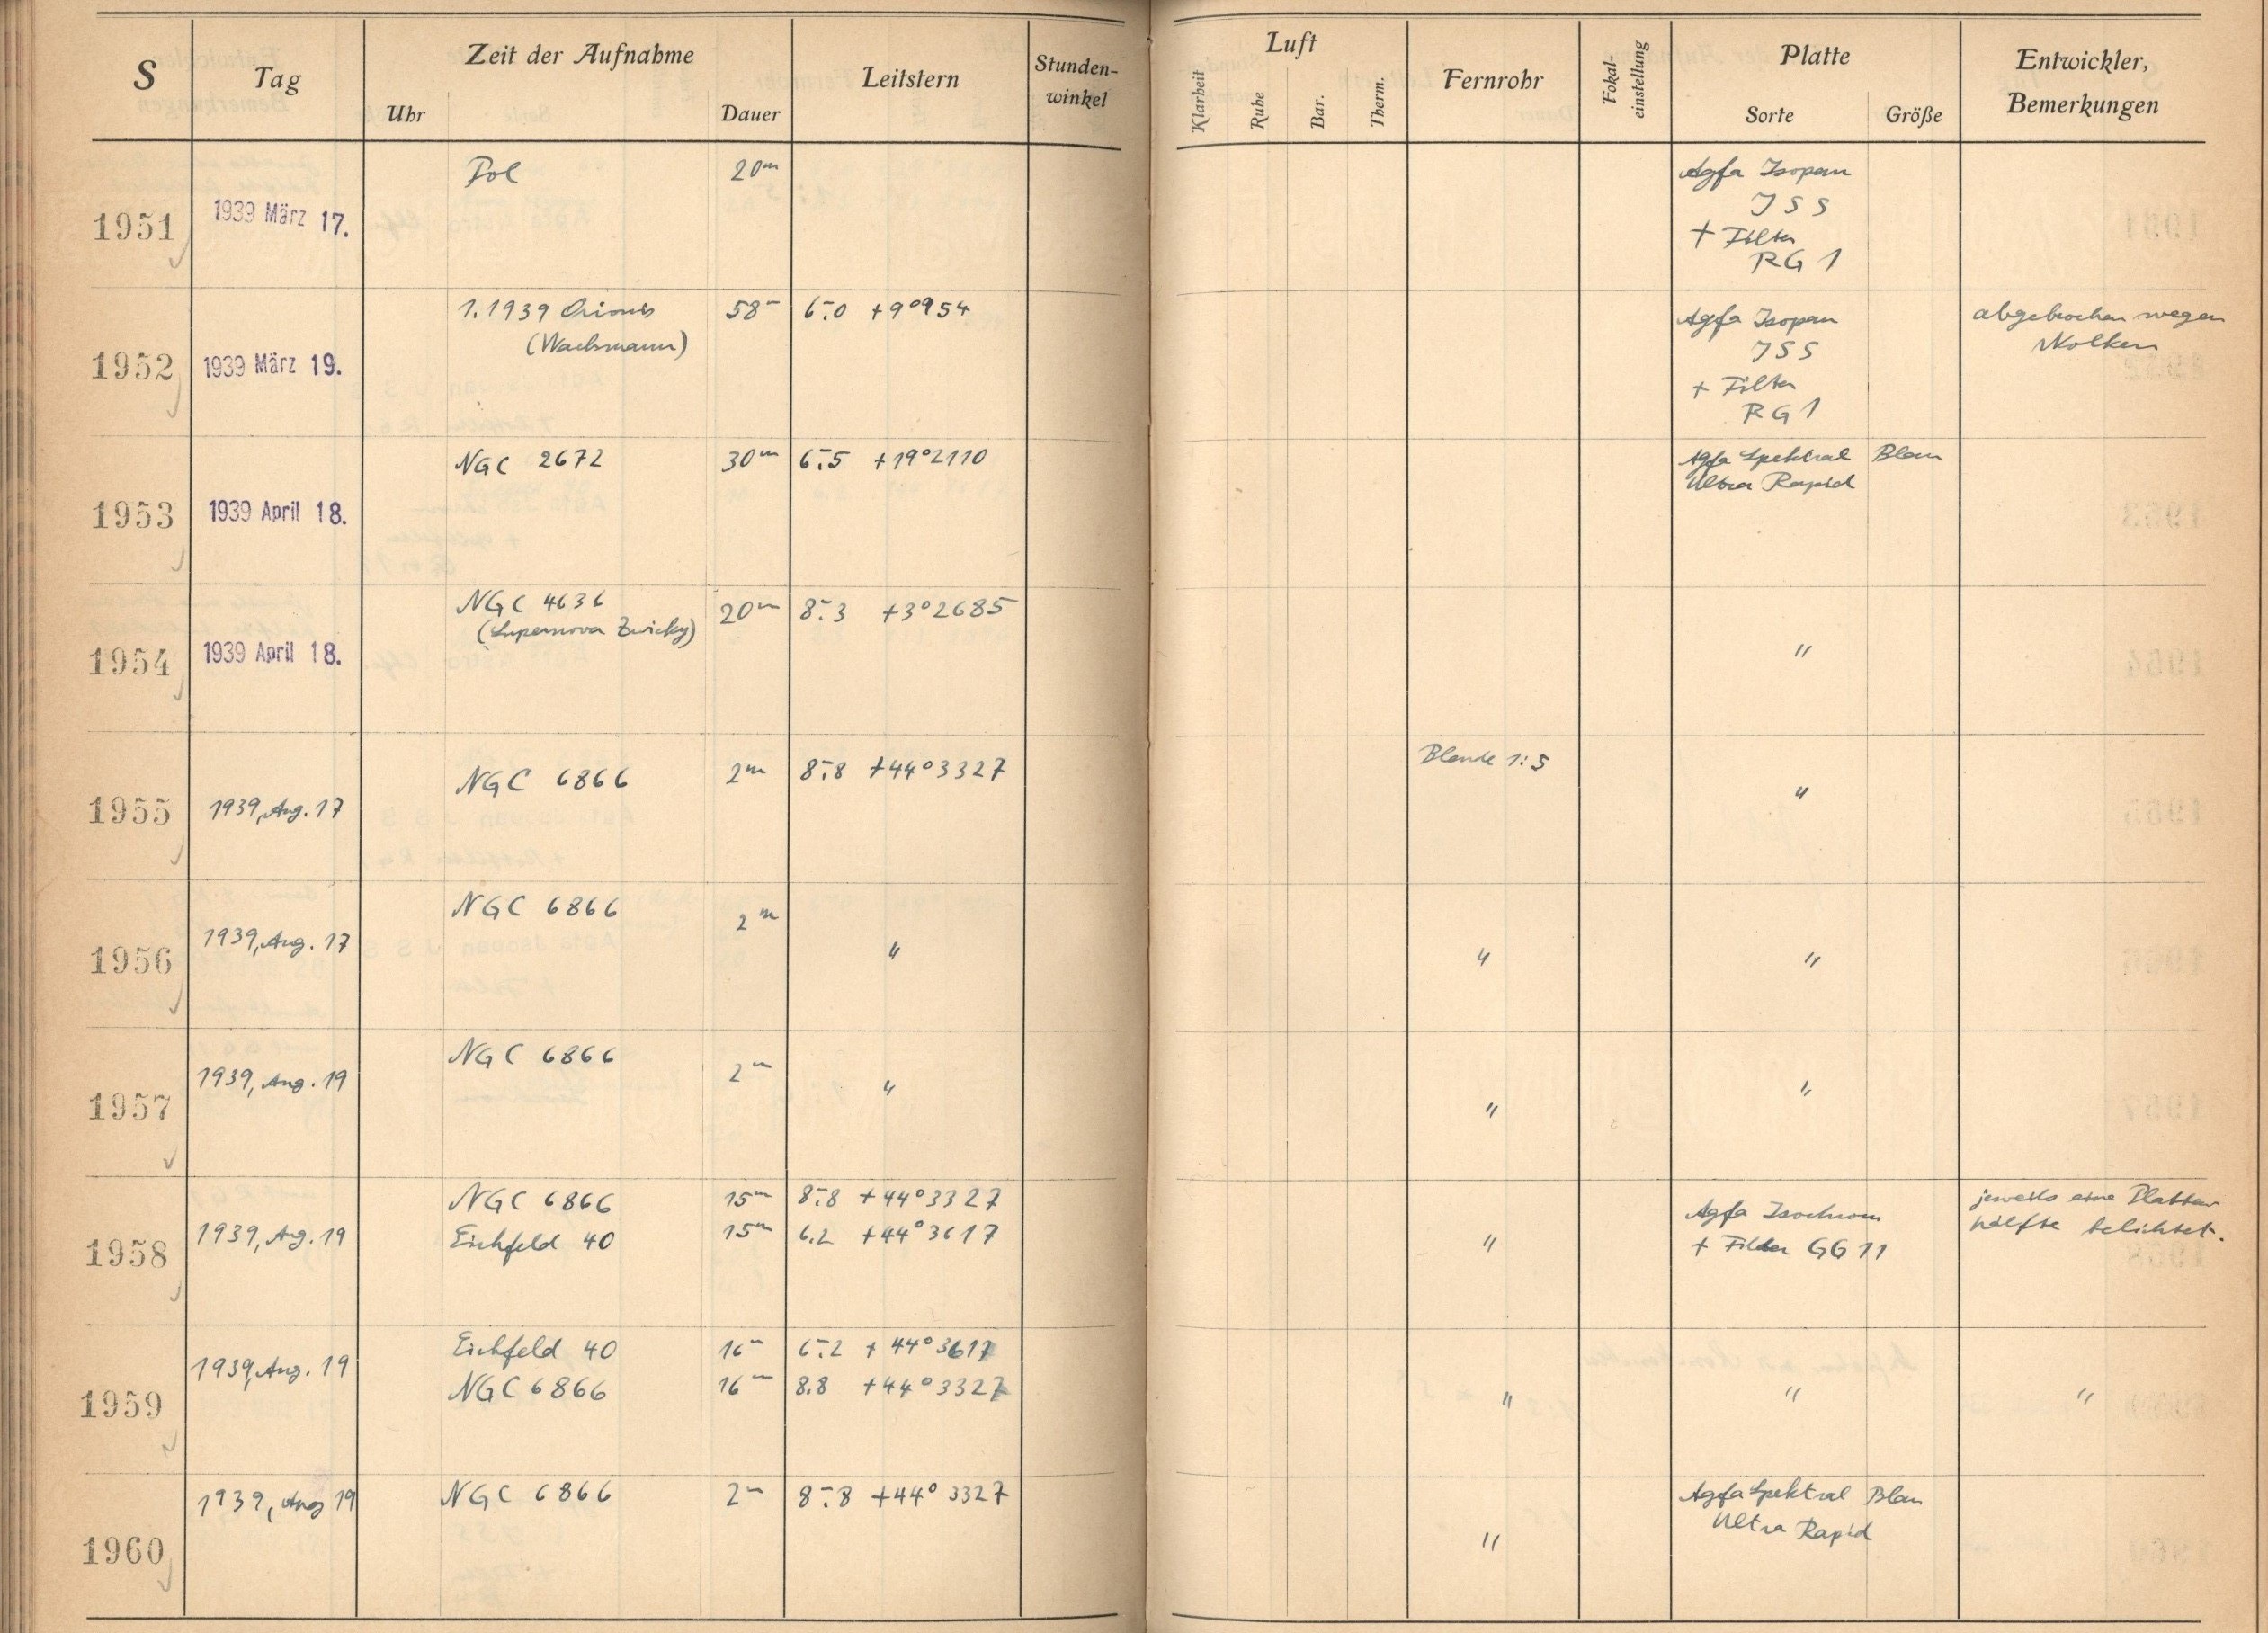 S Tag Zeit der Aufnahme Leitstern Stunden-winkel Luft Fernrohr Fokal-einstellung Platte Entwickler, Bemerkungen
Uhr Dauer Klarheit Ruhe Bar. Therm. Sorte Größe
1951 1939 März 17. Pol 20m Agfa Isopan
ISS
+ Filter
RG 1
1952 1939 März 19. 1.1939 Orionis 58m 6m.0 +9°954 Agfa Isopan abgebrochen wegen
(Wachmann) ISS Wolken
+ Filter
RG 1
1953 1939 April 18. NGC 2672 30m 6m.5 +19°2110 Agfa Spektral Blau
Ultra Rapid
1954 1939 April 18. NGC 4636 20m 8m.3 +3°2685 "
(Supernova Zwicky)
1955 1939, Aug. 17 NGC 6866 2m 8m.8 +44°3327 Blende 1:5 "
1956 1939, Aug. 17 NGC 6866 2m " " "
1957 1939, Aug. 19 NGC 6866 2m " " "
1958 1939, Aug. 19 NGC 6866 15m 8m.8 +44°3327 " Agfa Isochrom jeweils eine Platten
Eichfeld 40 15m 6.2 +44°3617 + Filter GG 11 hälfte belichtet.
1959 1939, Aug. 19 Eichfeld 40 16m 6m.2 +44°3617 " " "
NGC 6866 16m 8.8 +44°3327
1960 1939, Aug 19 NGC 6866 2m 8m.8 +44°3327 " Agfa Spektral Blau
Ultra Rapid